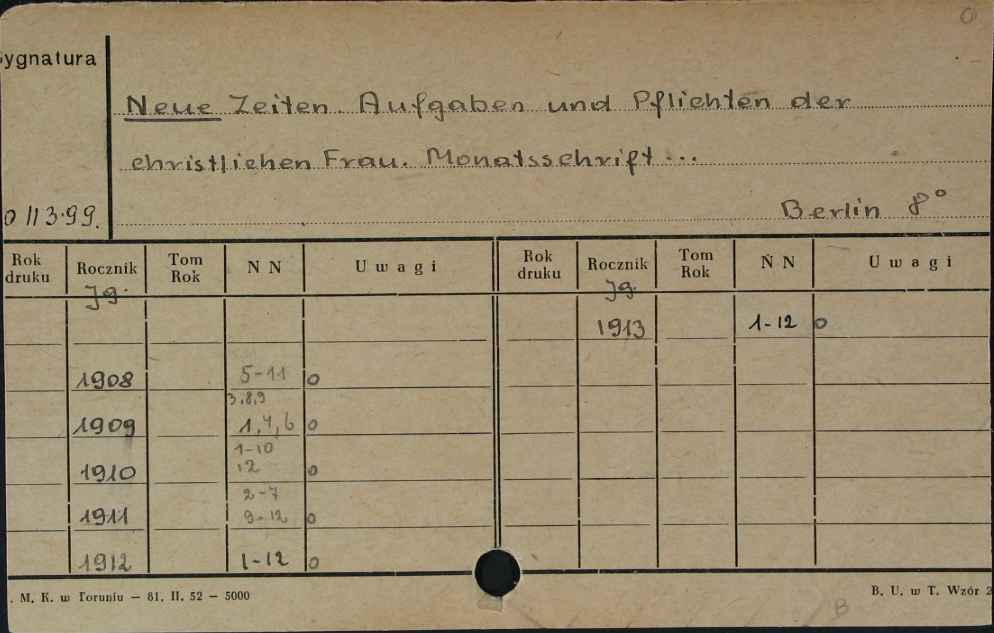 O
ygnatura
Neue Zeiten. Aufgaben und Pflichten der
christlichen Frau. Monatsschrift...
0 113.99.
Berlin 8°
Rok druku Rocznik Tom Rok N N Uwagi Rok druku Rocznik Tom Rok N N Uwagi
Jg. Jg.
1913 1-12 o
1908 5-11 o
3,8,9
1909 1,4,6 o
1-10
1910 12 o
2-7
1911 9-12 o
1912 1-12 o
. M. K. w Toruniu — 81. II. 52 — 5000
B. U. w T. Wzór 2
B